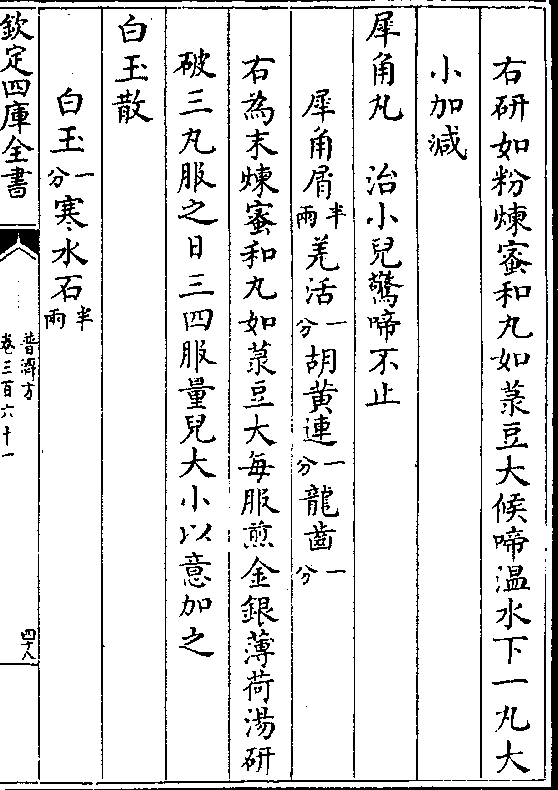 右研如粉煉蜜和丸如菉豆大候啼温水下一丸大
小加減
犀角丸　治小兒驚啼不止
犀角屑半兩羌活一分胡黄連一分龍齒一分
右為末煉蜜和丸如菉豆大每服煎金銀薄荷湯研
破三丸服之日三四服量兒大小以意加之
白玉散
白玉一分寒水石半兩
欽定四庫全書
普濟方
卷三百六十一
四十八